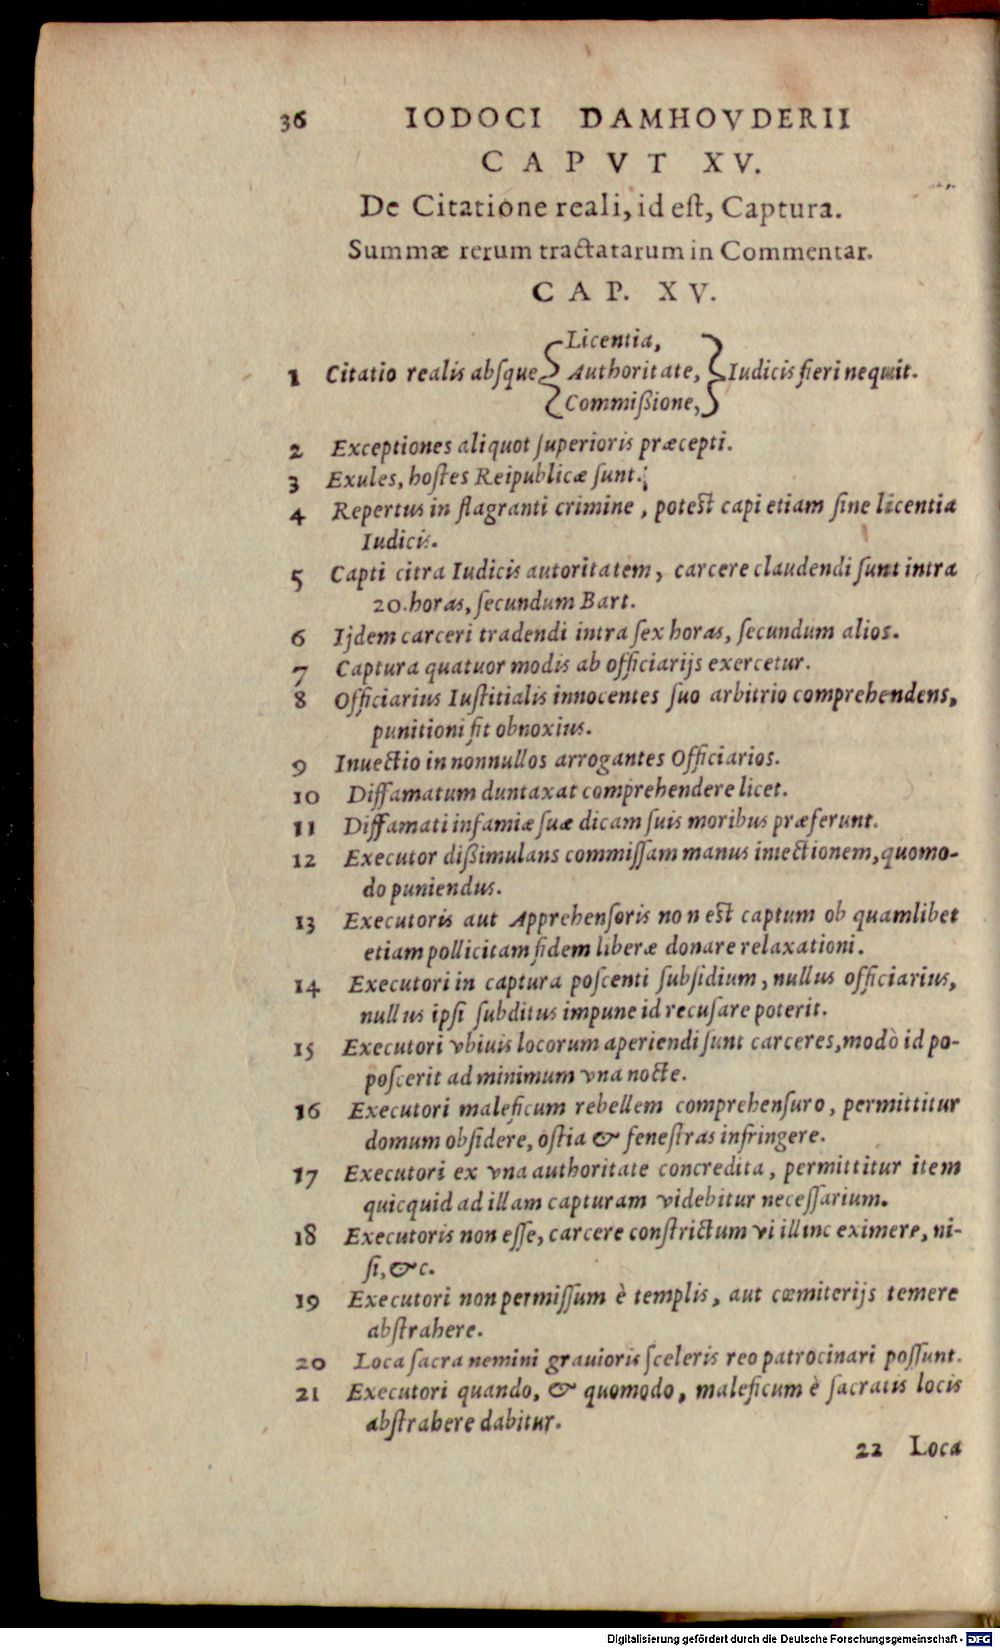 36 IODOCI DAMHOVDERII
CAPVT XV.
De Citatione reali, id eſt, Captura.
Summæ rerum tractatarum in Commentar.
CAP. XV.
Licentia,
1 Citatio realis abſque Authoritate, Iudicis fieri nequit.
Commißione,
2 Exceptiones aliquot ſuperioris præcepti.
3 Exules, hoſtes Reipublicæ ſunt.
4 Repertus in flagranti crimine, poteſt capi etiam ſine licentia
Iudicis.
5 Capti citra Iudicis autoritatem, carcere claudendi ſunt intra
20. horas, ſecundum Bart.
6 Ijdem carceri tradendi intra ſex horas, ſecundum alios.
7 Captura quatuor modis ab officiarijs exercetur.
8 Officiarius Iuſtitialis innocentes ſuo arbitrio comprehendens,
punitioni fit obnoxius.
9 Inuectio in nonnullos arrogantes Officiarios.
10 Diffamatum duntaxat comprehendere licet.
11 Diffamati infamiæ ſuæ dicam ſuis moribus præferunt.
12 Executor dißimulans commiſſam manus iniectionem, quomo-
do puniendus.
13 Executoris aut Apprehenſoris non eſt captum ob quamlibet
etiam pollicitam fidem liberæ donare relaxationi.
14 Executori in captura poſcenti ſubſidium, nullus officiarius,
nullus ipſi ſubditus impune id recuſare poterit.
15 Executori vbiuis locorum aperiendi ſunt carceres, modò id po-
poſcerit ad minimum vna nocte.
16 Executori maleficum rebellem comprehenſuro, permittitur
domum obſidere, oſtia & feneſtras infringere.
17 Executori ex vna authoritate concredita, permittitur item
quicquid ad illam capturam videbitur neceſſarium.
18 Executoris non eſſe, carcere conſtrictum vi illinc eximere, ni-
ſi, &c.
19 Executori non permiſſum è templis, aut cœmiterijs temere
abſtrahere.
20 Loca ſacra nemini grauioris ſceleris reo patrocinari poſſunt.
21 Executori quando, & quomodo, maleficum è ſacratis locis
abſtrahere dabitur.
22 Loca
Digitalisierung gefördert durch die Deutsche Forschungsgemeinschaft - DFG